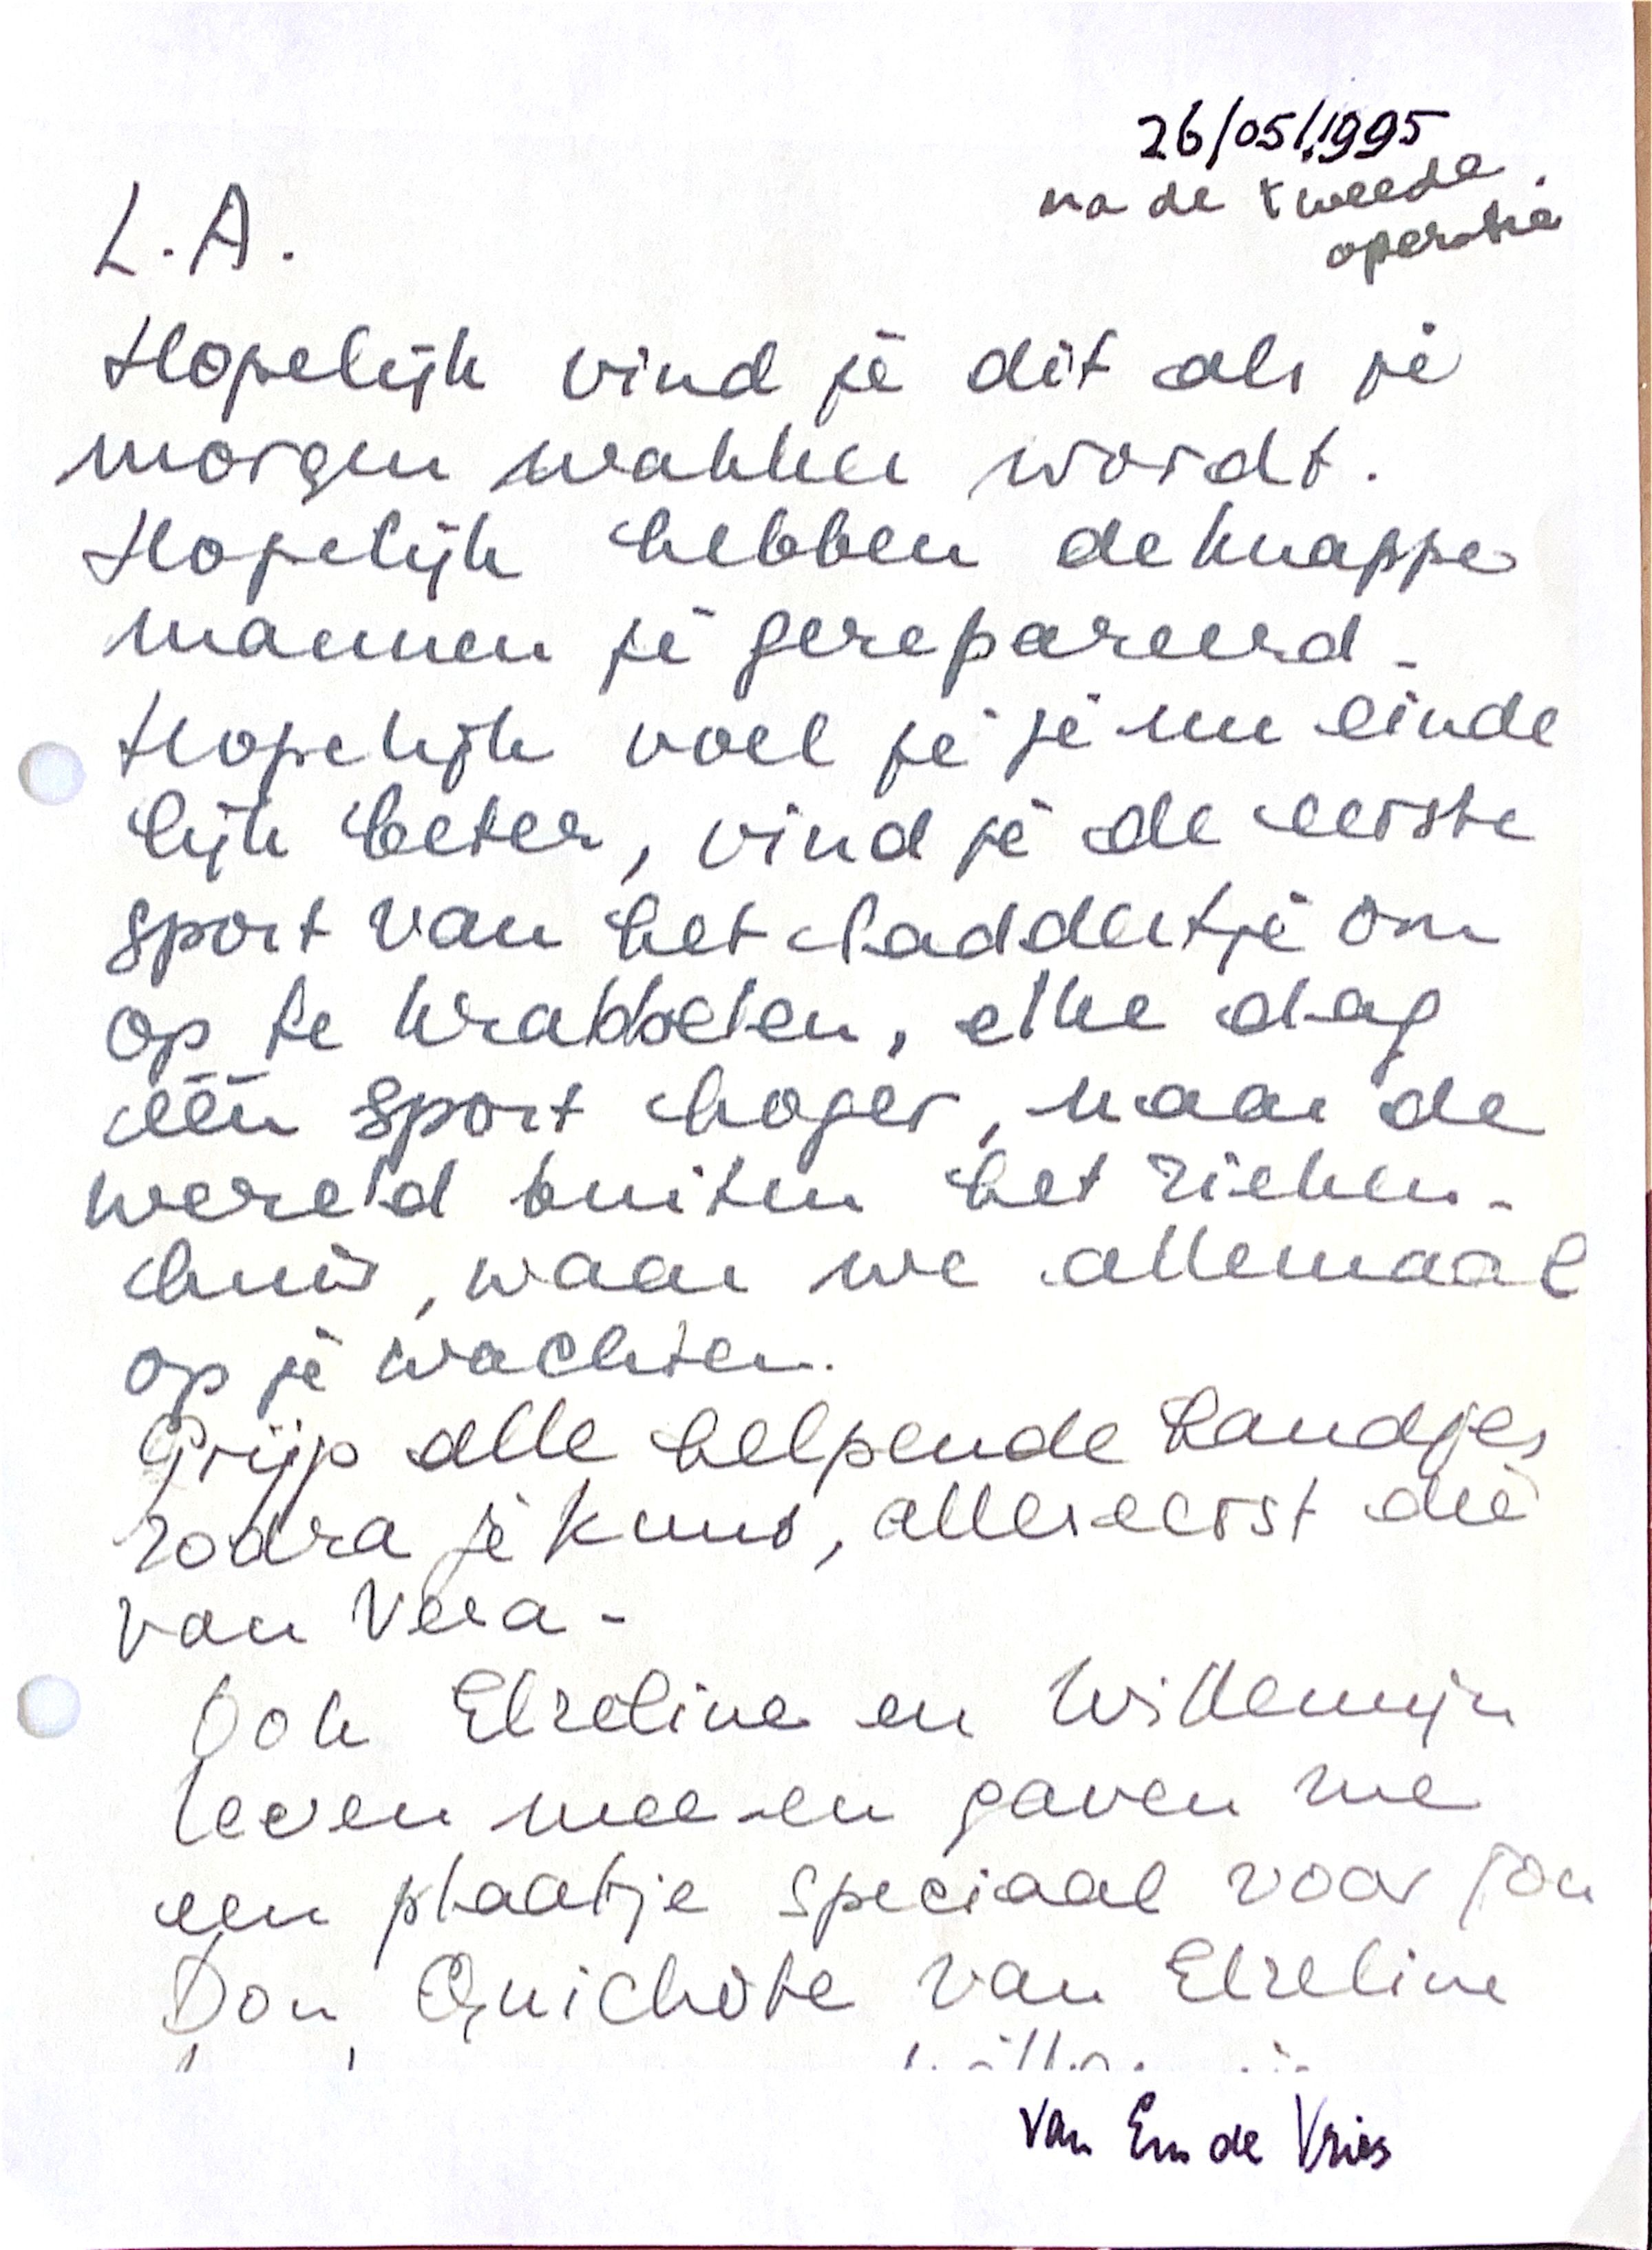 26/05/1995
na de tweede
operatie
L.A.
Hopelijk vind je dit als je
morgen wakker wordt.
Hopelijk hebben de knappe
mannen je gerepareerd.
Hopelijk voel je je nu einde
lijk beter, vind je de eerste
sport van het laddertje om
op te krabbelen, elke dag
één sport hoger, naar de
wereld buiten het zieken-
huis, waar we allemaal
op je wachten.
Grijp alle helpende handjes
zodra je kunt, allereerst die
van Vera-
Ook Elzeline en Willemijn
leven mee en gaven me
een plaatje speciaal voor jou
Don Quichote van Elzeline
van Em de Vries